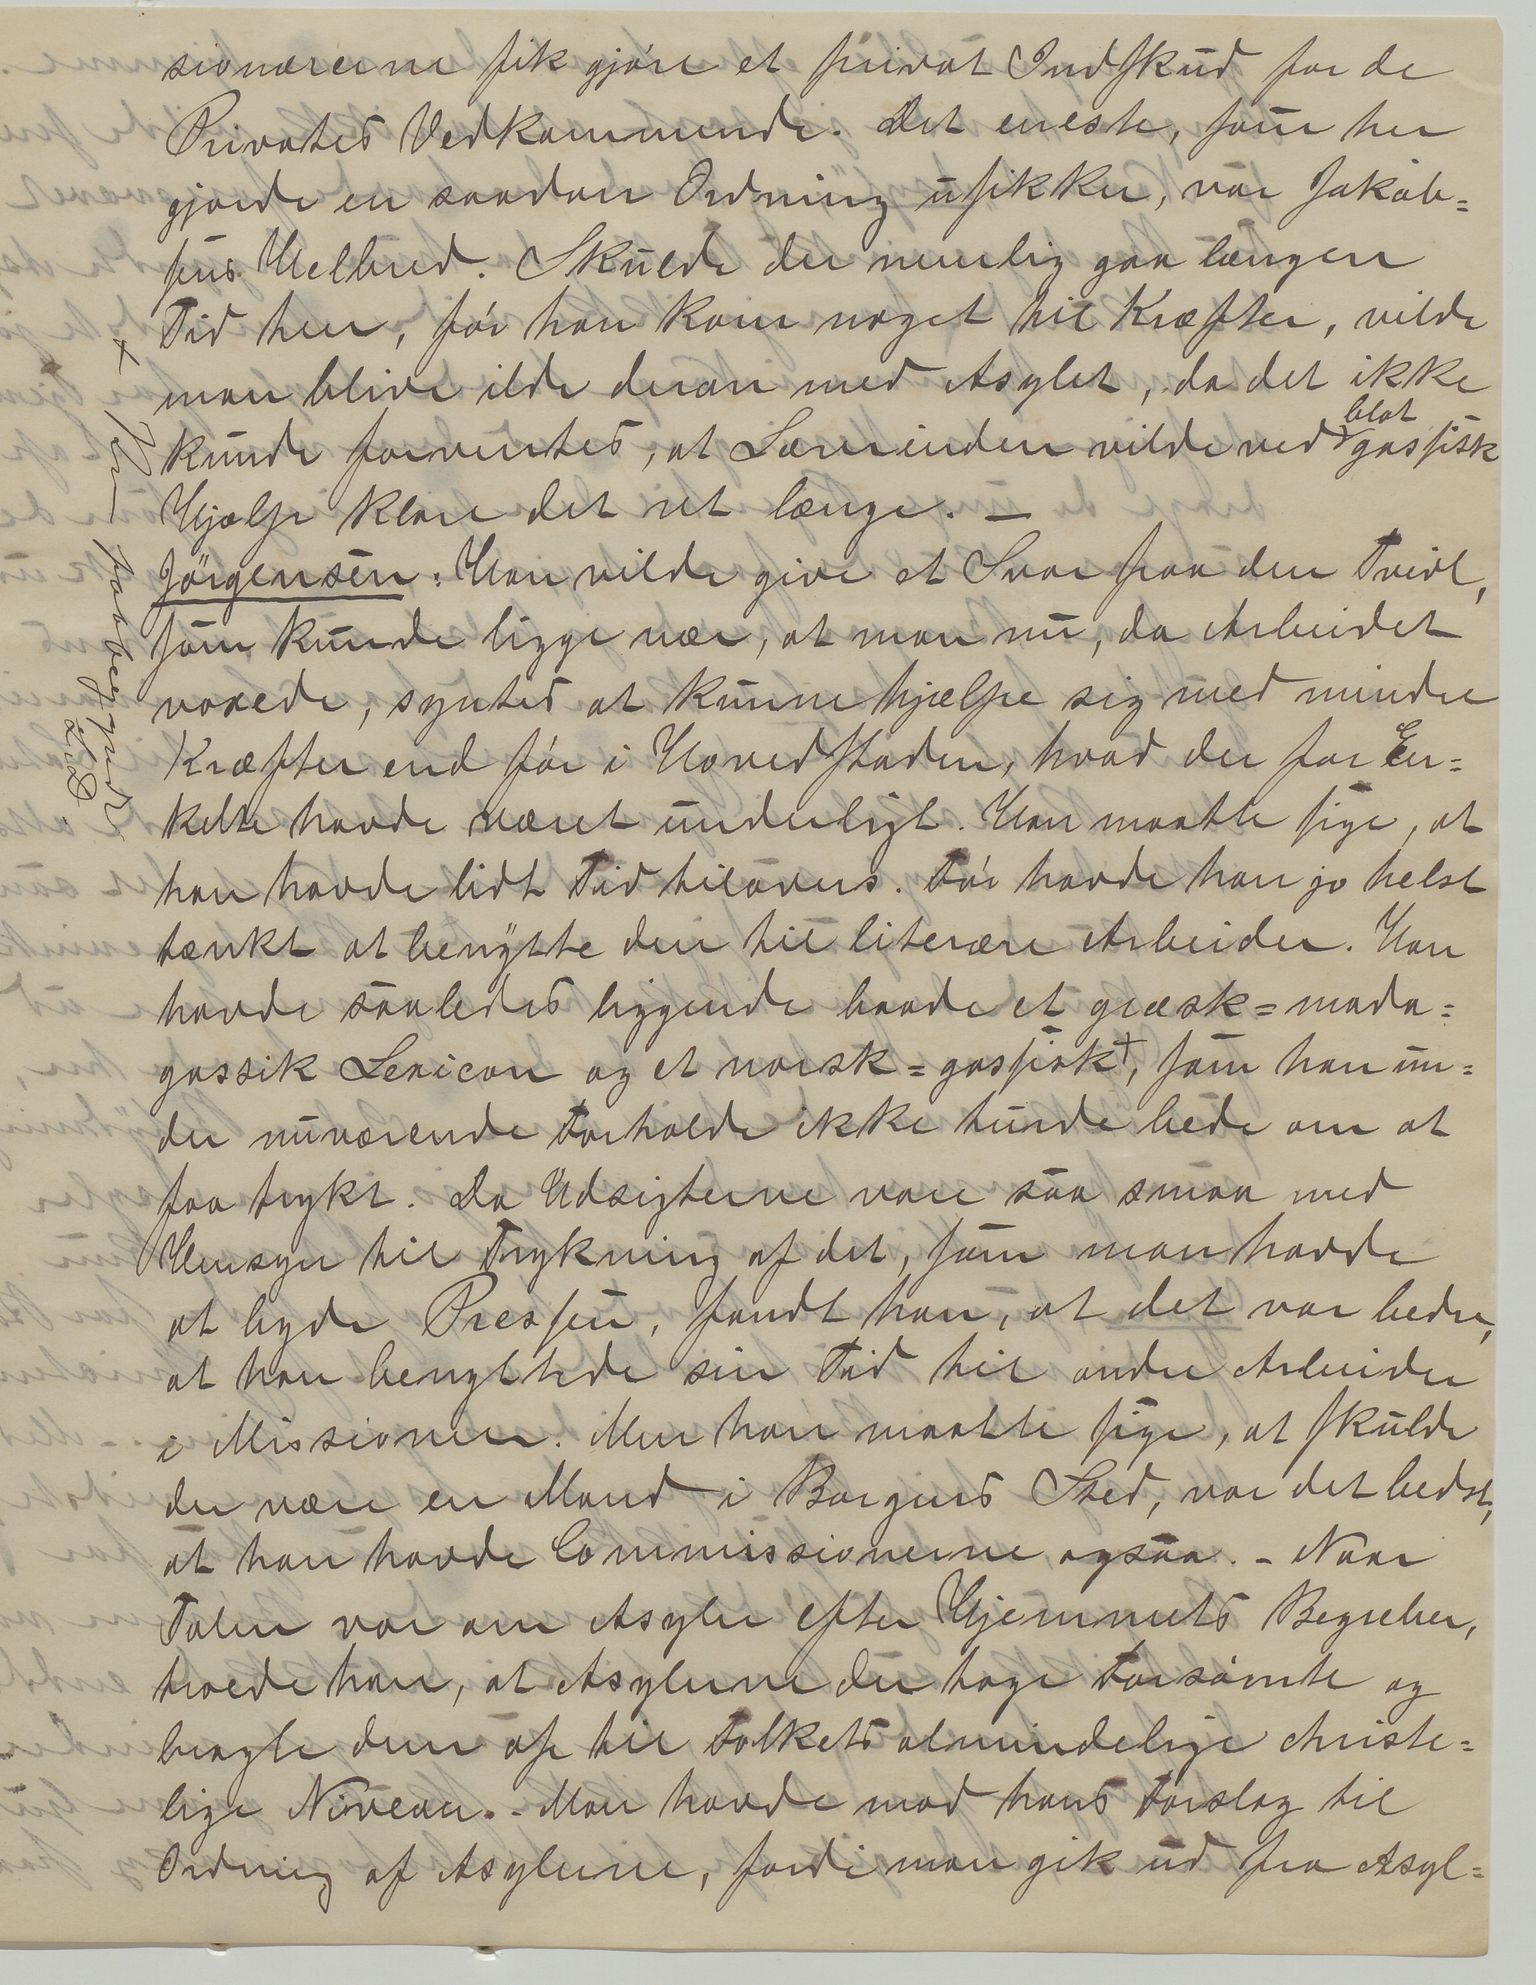 sionærerne fik gjøre et privat Indskud for de
Privates Vedkommende. Det eneste, som her
gjorde en saadan Ordning usikker, var Jakob=
sens Helbred. Skulde der nemlig gaa længere
Tid hen, før han kom noget til Kræfter, vilde
man blive ilde deran med Asylet, da det ikke
kunde forventes, at Lærerinden vilde ved blot gassisk
Hjælp klare det ret længe. —
Jörgensen: Han vilde give et Svar paa den Tvivl,
som kunde ligge nær, at man nu, da Arbeidet
voxede, syntes at kunne hjælpe sig med mindre
Kræfter end før i Hovedstaden, hvad der for En=
kelte havde været underligt. Han maatte sige, at
han havde lidt Tid tilovers. Før havde han jo helst
tænkt at benytte den til literære Arbeider. Han
havde saaledes liggende baade et græsk=mada=
gassik Lexicon og et norsk=gassisk+, som han un=
der nuværende Forholde ikke turde bede om at
faa trykt. Da Udsigterne vare saa smaa med
Hensyn til Trykning af det, som man havde
at byde Pressen, fandt han, at det var bedre,
at han benyttede sin Tid til andre Arbeider
i Missionen. Men han maatte sige, at skulde
der være en Mand i Borgens Sted, var det bedst,
at han havde Commissionerne ogsaa. – Naar
Talen var om Asyler efter Hjemmets Begreber,
troede han, at Asylerne der toge Forsømte og
bragte dem op til Folkets almindelige christe=
lige Niveau. – Man havde mod hans Forslag til
Ordning af Asylerne, fordi man gik ud fra Asyl=
+
paabegyndt
L.D.